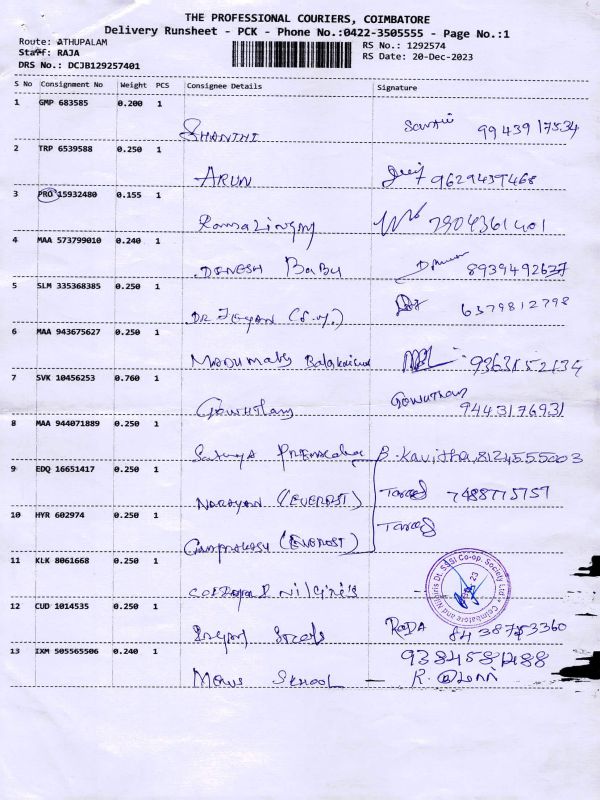 THE PROFESSIONAL COURIERS, COIMBATORE
Delivery Runsheet - PCK - Phone No.:0422-3505555 - Page No.:1
Route: ATHUPALAM
RS No.: 1292574
Staff: RAJA
RS Date: 20-Dec-2023
DRS No.: DCJB129257401
S No Consignment No Weight PCS Consignee Details Signature
1 GMP 683585 0.200 1
SHANTHI 9943917534
2 TRP 6539588 0.250 1
ARUN 9629439468
3 PRO 15932480 0.155 1
Ramalingam 7904361401
4 MAA 573799010 0.240 1
DINESH BABU 8939492637
5 SLM 335368385 0.250 1
DR 6379812798
6 MAA 943675627 0.250 1
9363152134
7 SVK 10456253 0.760 1
Gowtham Gowtham
9443176931
8 MAA 944071889 0.250 1
B. Kavitha, 8124555003
9 EDQ 16651417 0.250 1
NARAYAN (EVEREST) 7488775757
10 HYR 602974 0.250 1
(EVEREST)
11 KLK 8061668 0.250 1
Nilgiri's
Coimbatore and Nilgiris Dt. SSSI Co-op. Society Ltd
12 CUD 1014535 0.250 1
8438753360
13 IXM 505565506 0.240 1
9384581488
School - R.